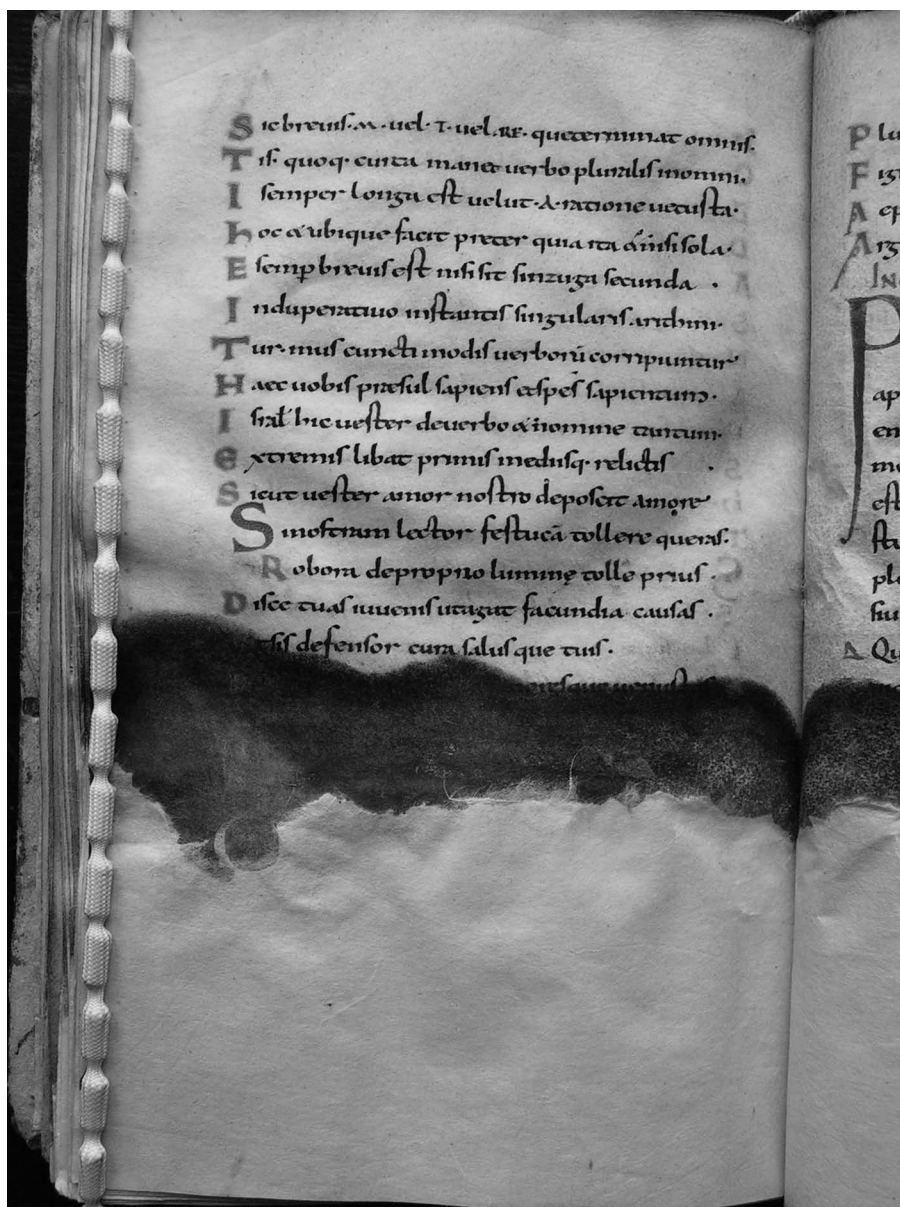 Sic breuis .M. uel .T. uel .RE. que terminat omnis.
Tis. quoq. curta manet uerbo pluralis in omni.
I semper longa est uelut .A. ratione uetusta.
hoc & ubique facit preter quia ita & nisi sola.
E semp breuis est nisi sit sinzuga secunda .
Induperatiuo instantis singularis arithm.
Tur. mus cuncti modis uerborū corripiuntur
Haec uobis præsul sapiens & spes sapientum.
I hic uester de uerbo & nomine tantum.
extremis libat primis mediisq. relictis .
Sicut uester amor nostro deposcit amore
Si nostram lector festucā tollere queras.
Robora de proprio lumine tolle prius .
Disce tuas iuuenis ut agat facundia causas .
sis defensor cura salusque tuis .
oresque uenust
Plu
Fig
A ep
Arg
IN
P
ap
em
me
est
stu
ple
siu
A Qu